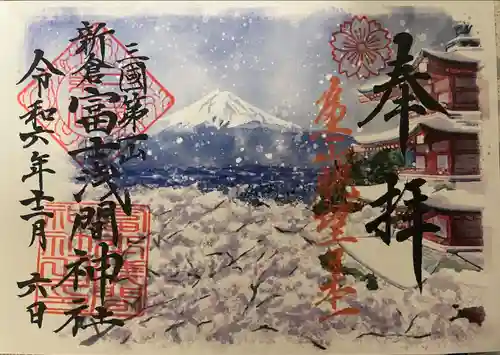 奉拝
三國第一山
新倉富士浅間神社
令和六年十二月六日